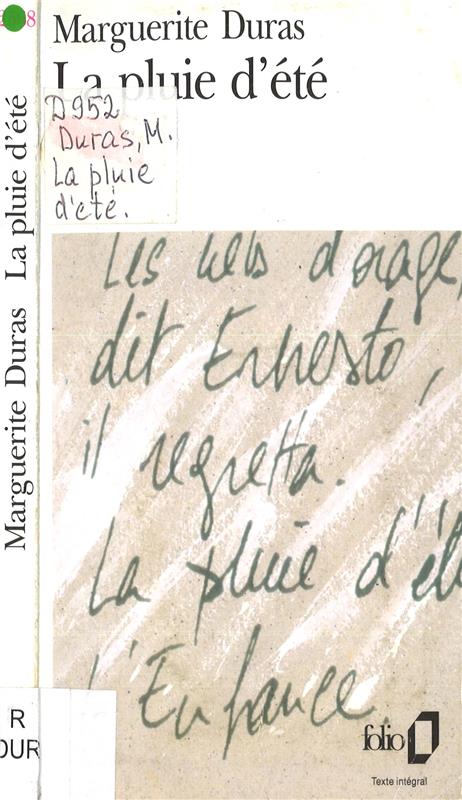 Marguerite Duras
La pluie d'été
D952
Duras, M.
La pluie
d'eté.
Les ciels d'orage,
dit Ernesto,
il regretta.
La pluie d'été
l'Enfance
folio
Texte intégral
Marguerite Duras La pluie d'été
R
DUR